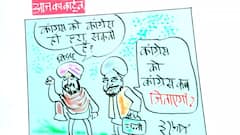 आज का कार्टून
कांग्रेस को कांग्रेस
ही हरा सकती
है!
कांग्रेस
को
कांग्रेस कब
जिताएगी?